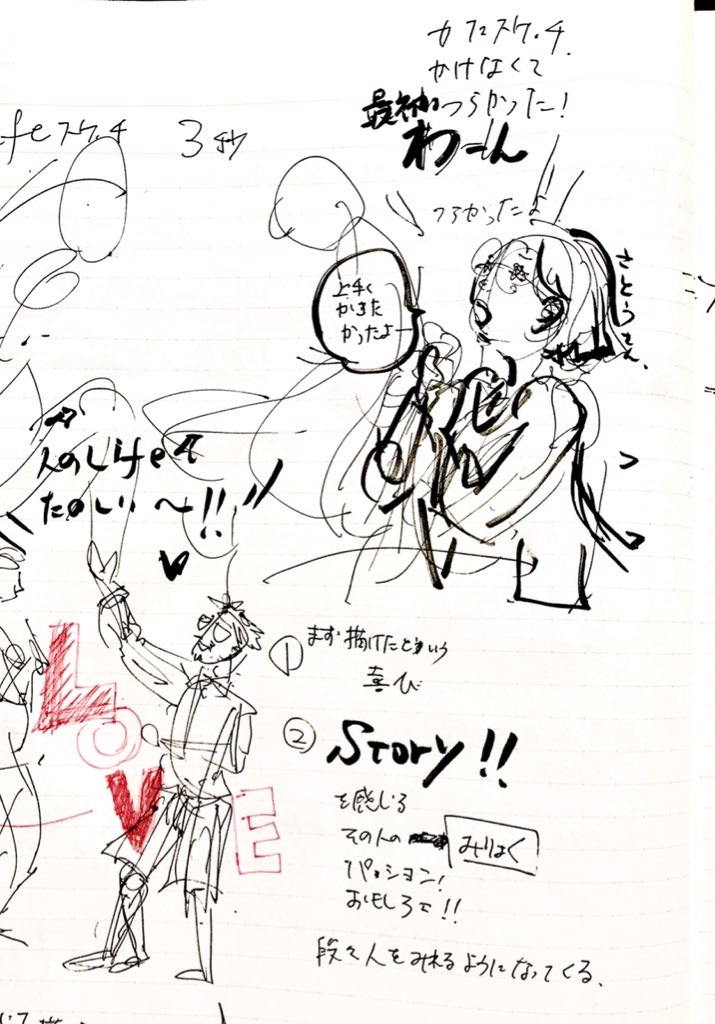 カフェスケッチ
かけなくて
最初はつらかった!
わーん
ifeスケッチ 3秒
つらかったよ
さとうさん
上手く
かきた
かったよー
人のLifeって
たのしい〜!!
LOVE
① まず描けたという
喜び
② Story!!
を感じる
その人の みりょく
パッション!
おもしろさ!!
段々人をみれるようになってくる。